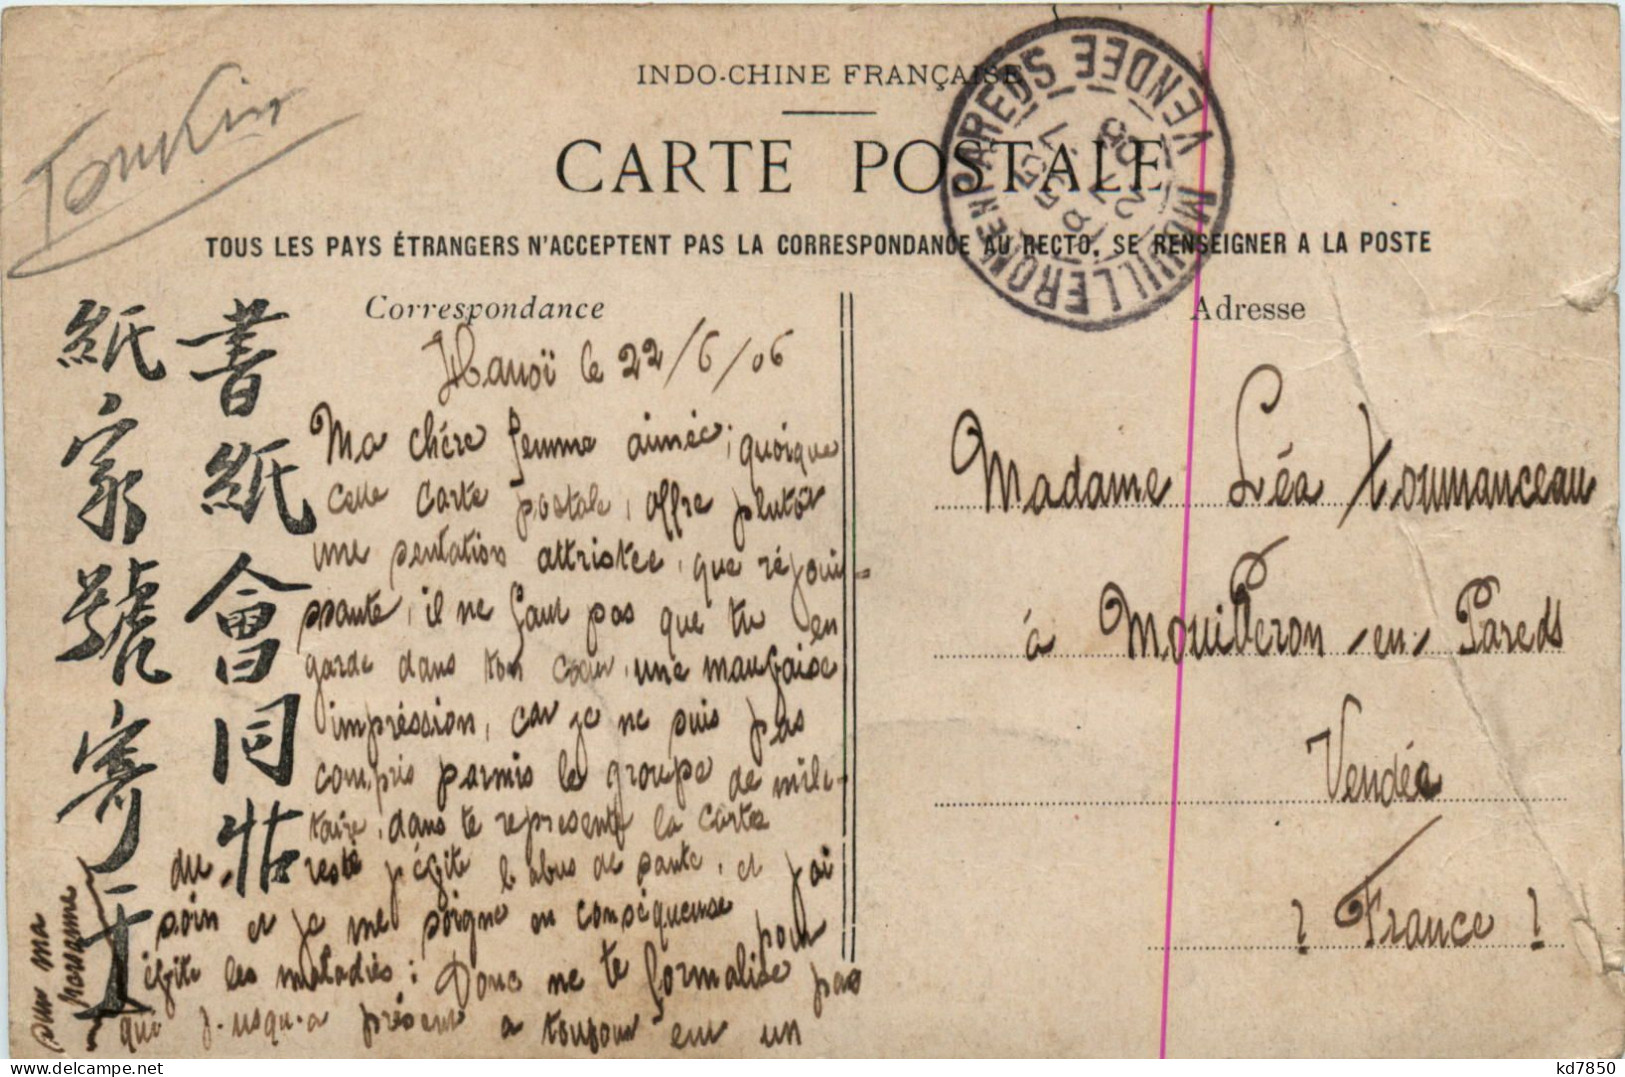 Tonkin
INDO-CHINE FRANÇAISE
CARTE POSTALE
TOUS LES PAYS ÉTRANGERS N'ACCEPTENT PAS LA CORRESPONDANCE AU RECTO, SE RENSEIGNER A LA POSTE
MOUILLERON EN PAREDS VENDÉE
Correspondance
Adresse
書紙會同
紙家號寄
Hanoï le 22/6/06
Ma chère femme aimée; quoique
cette carte postale, offre plutôt
une sentation attristée, que réjoui=
ssante, il ne faut pas que tu en
garde dans ton cœur, une mauvaise
impréssion, car je ne suis pas
compris parmis le groupe de mili-
taire, dans te represente la carte
du reste j'évite l'abus de santé, et j'ai
soin et je me soigne en conséqueuse pour
évite les maladies; Donc ne te formalise pas
qui jusqu-a présent a toujour eu un
sur ma
Madame Léa
à Mouilleron-en-Pareds
Vendée
! France !
kd7850